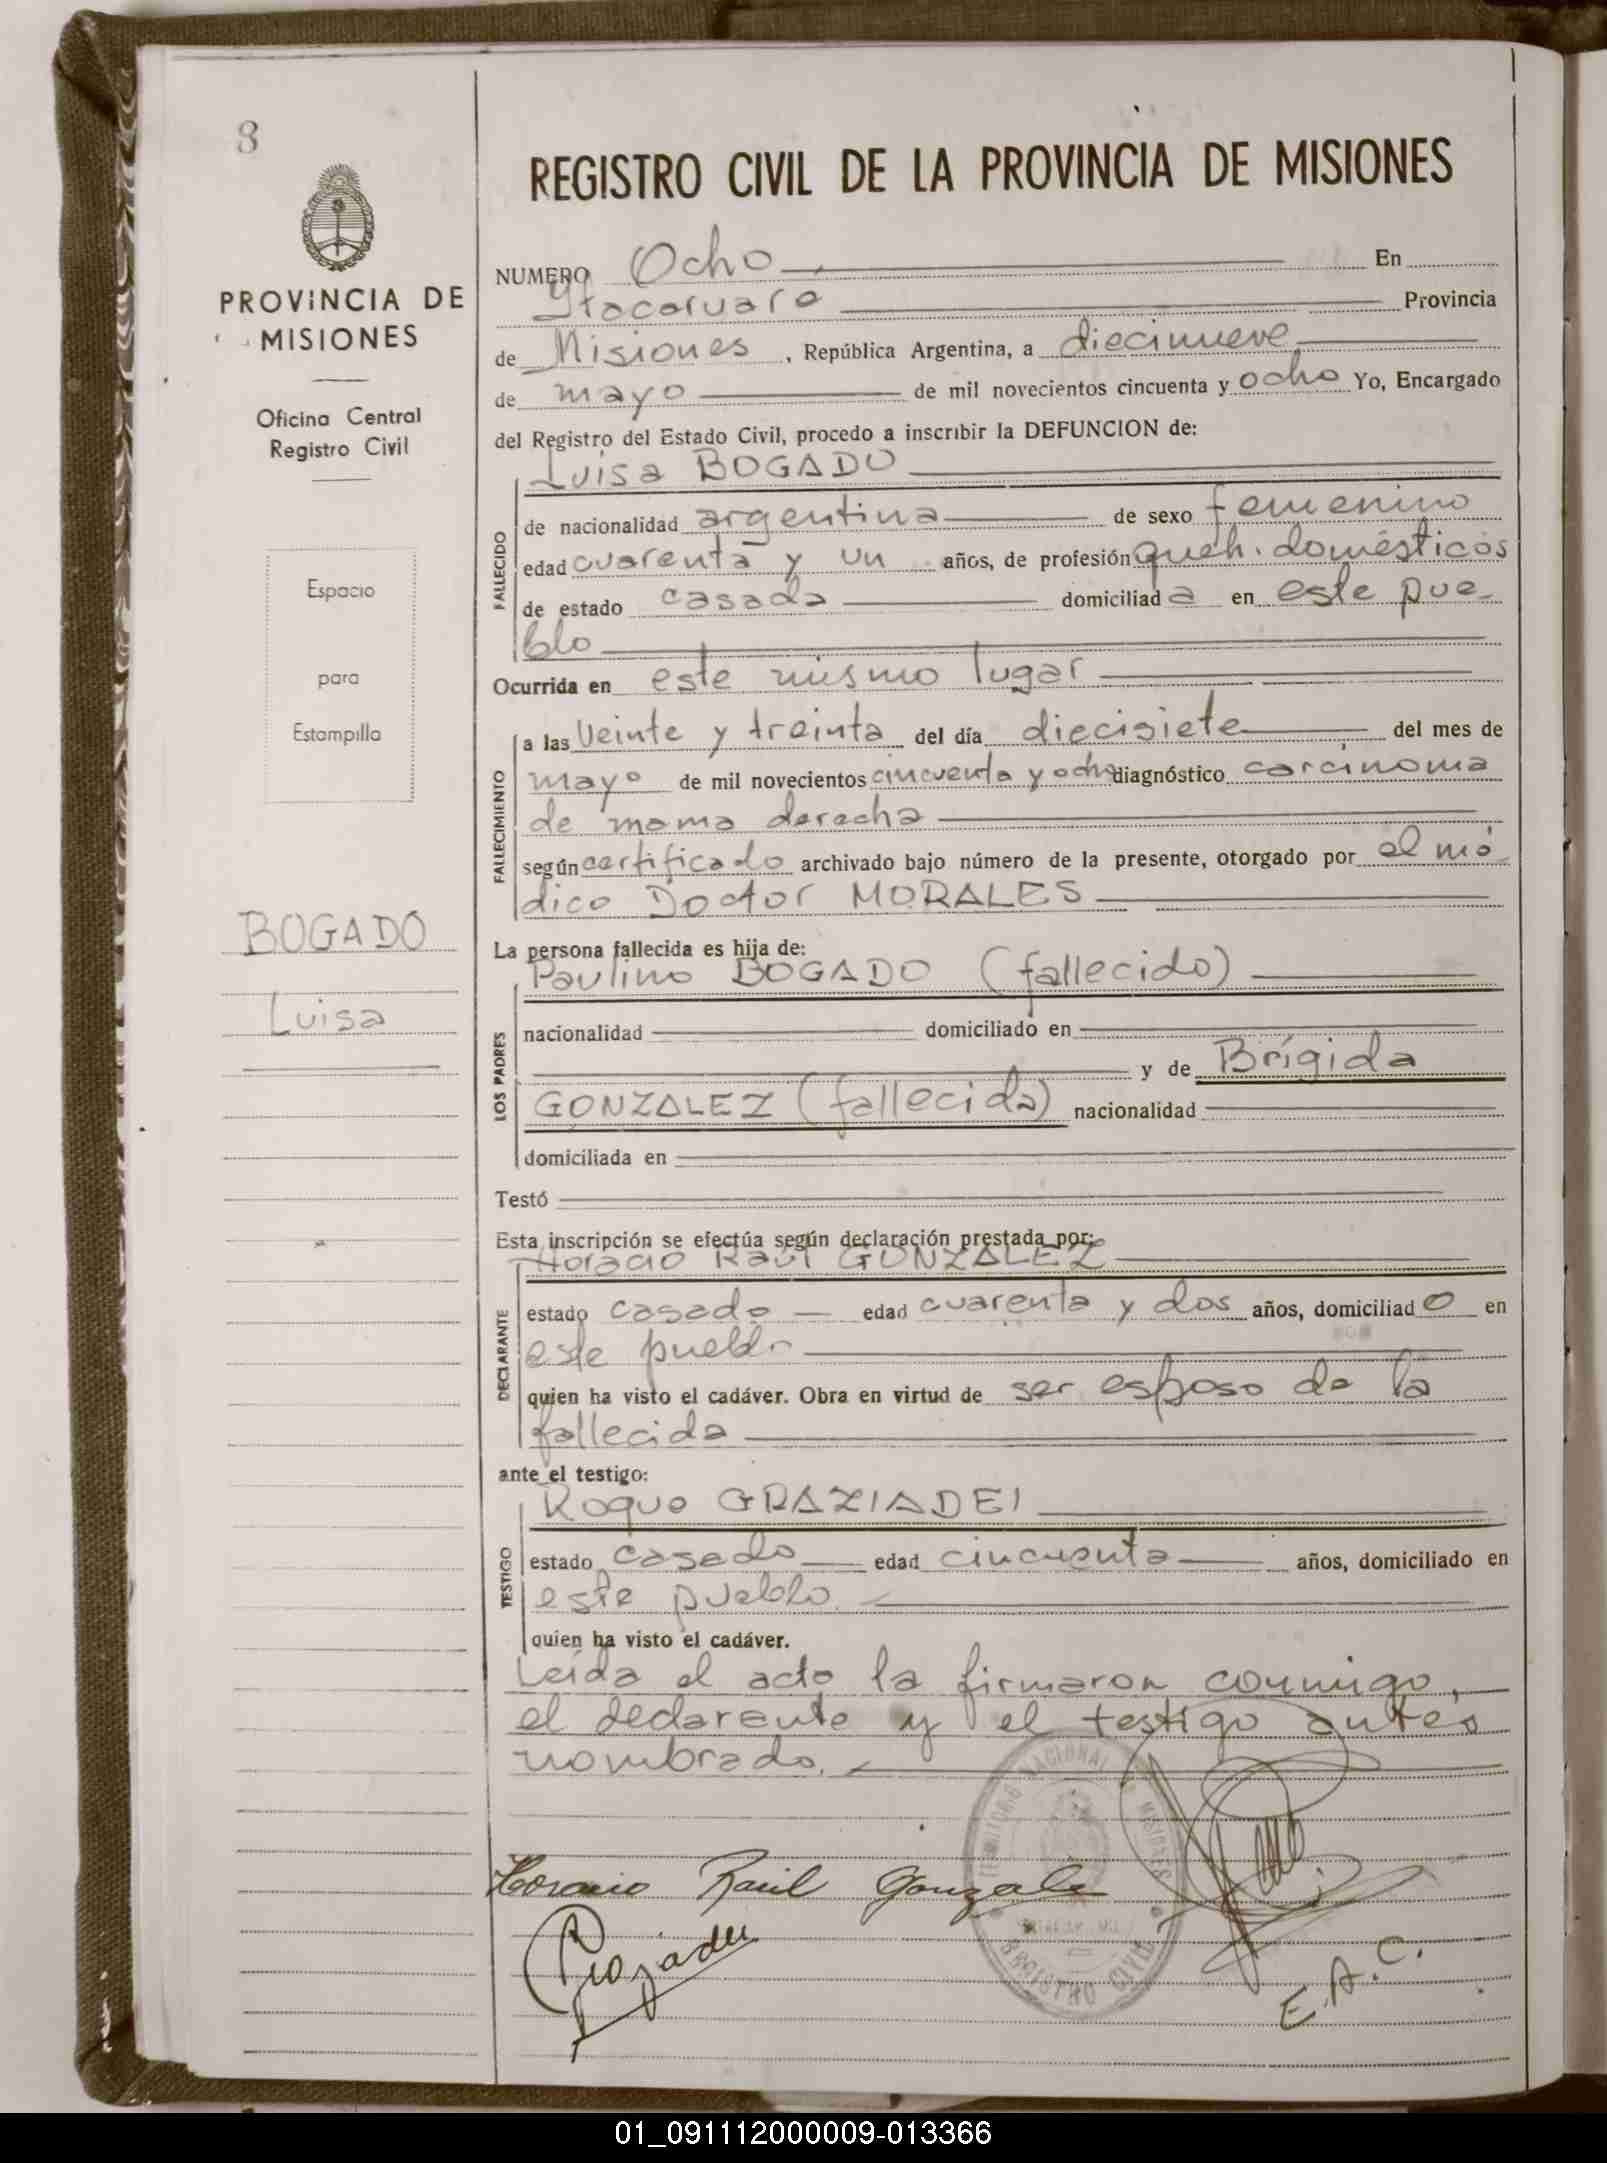 8
PROVINCIA DE
MISIONES
Oficina Central
Registro Civil
Espacio
para
Estampilla
BOGADO
Luisa
REGISTRO CIVIL DE LA PROVINCIA DE MISIONES
NUMERO Ocho En
Itacaruare Provincia
de Misiones, República Argentina, a diecinueve
de mayo de mil novecientos cincuenta y ocho Yo, Encargado
del Registro del Estado Civil, procedo a inscribir la DEFUNCION de:
Luisa BOGADO
FALLECIDO
de nacionalidad argentina de sexo femenino
edad cuarenta y un años, de profesión queh. domésticos
de estado casada domiciliada en este pue-
blo
Ocurrida en este mismo lugar
FALLECIMIENTO
a las veinte y treinta del día diecisiete del mes de
mayo de mil novecientos cincuenta y ocho diagnóstico carcinoma
de mama derecha
según certificado archivado bajo número de la presente, otorgado por el mé-
dico Doctor MORALES
La persona fallecida es hija de:
LOS PADRES
Paulino BOGADO (fallecido)
nacionalidad domiciliado en
y de Brígida
GONZALEZ (fallecida) nacionalidad
domiciliada en
Testó
Esta inscripción se efectúa según declaración prestada por:
DECLARANTE
Horacio Raúl GONZALEZ
estado casado edad cuarenta y dos años, domiciliado en
este pueblo
quien ha visto el cadáver. Obra en virtud de ser esposo de la
fallecida
ante el testigo:
TESTIGO
Roque GRAZIADEI
estado casado edad cincuenta años, domiciliado en
este pueblo.
quien ha visto el cadáver.
Leída el acta la firmaron conmigo,
el declarante y el testigo antes
nombrado.
TERRITORIO NACIONAL MISIONES
REGISTRO CIVIL
Horacio Raúl Gonzalez
E.A.C.
01_091112000009-013366